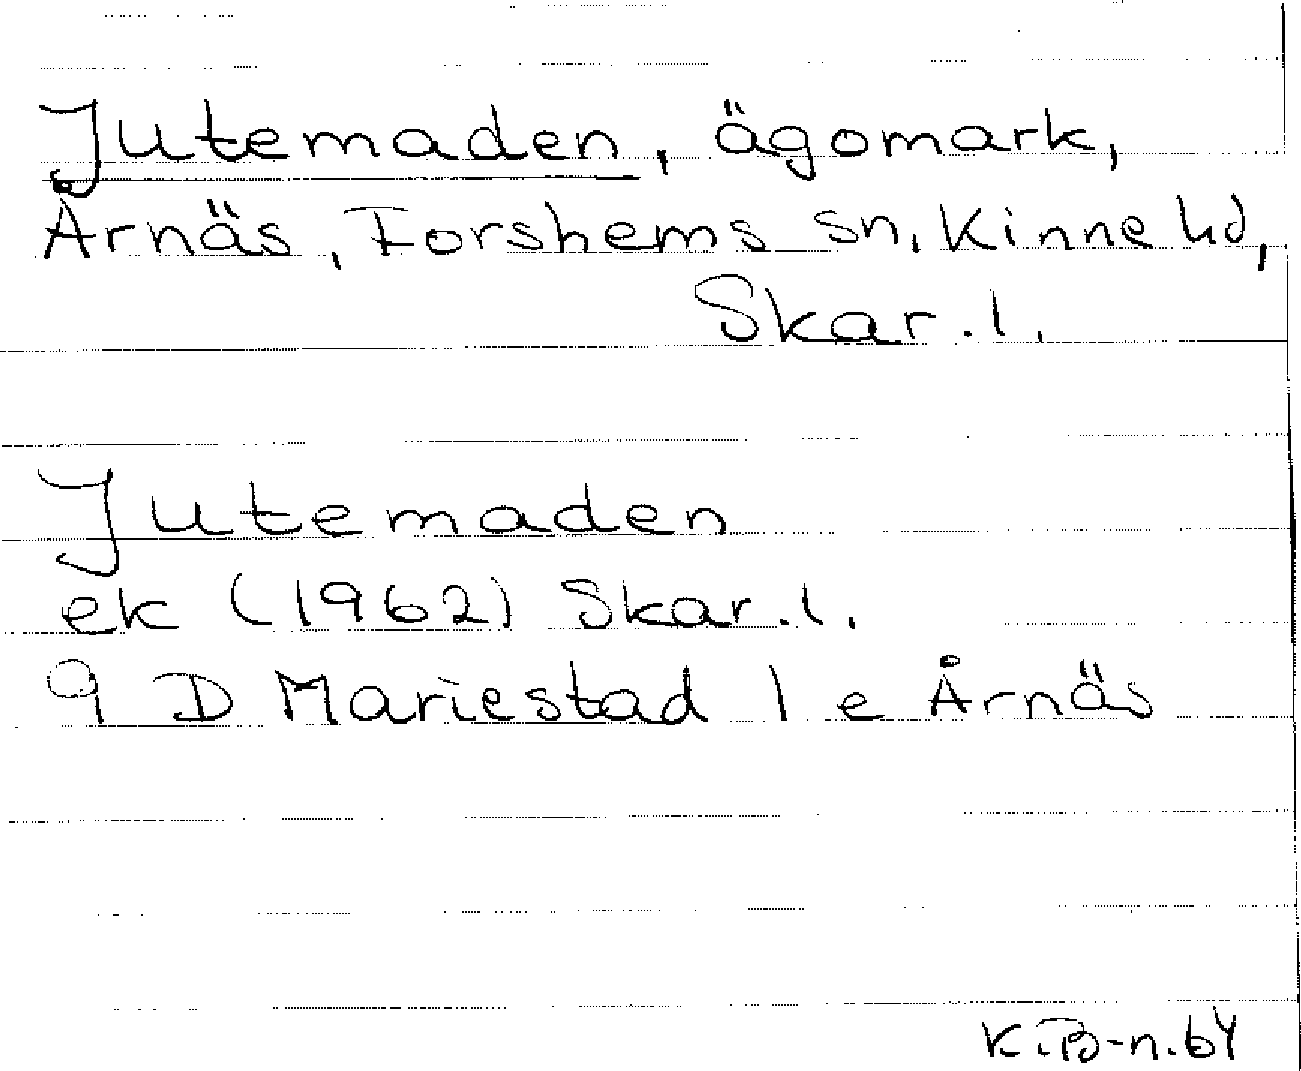 Jutemaden, ägomark,
Årnäs, Forshems sn, Kinne hd,
Skar.l.
Jutemaden
ek (1962) Skar.l.
9 D Mariestad 1 e Årnäs
K.B-n.64